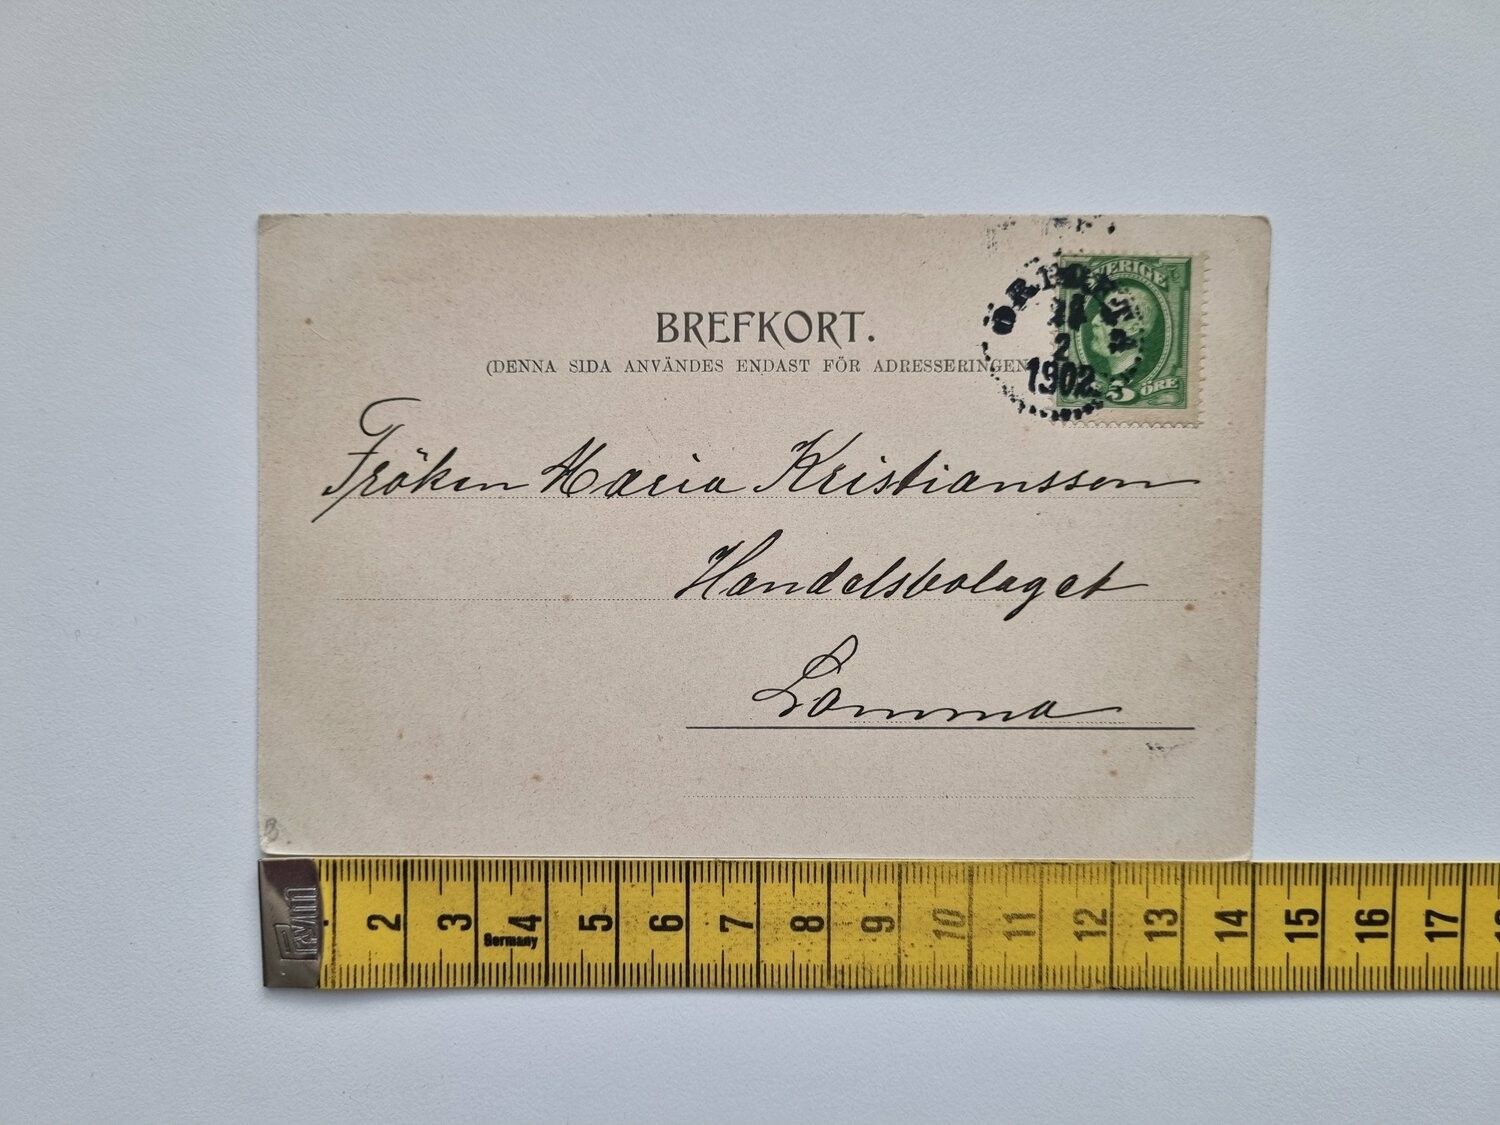 BREFKORT.
(DENNA SIDA ANVÄNDES ENDAST FÖR ADRESSERINGEN
SVERIGE
5 ÖRE
2
1902
Fröken Maria Kristiansson
Handelsbolaget
Lomma
2 3 4 5 6 7 8 9 10 11 12 13 14 15 16 17 18
Germany